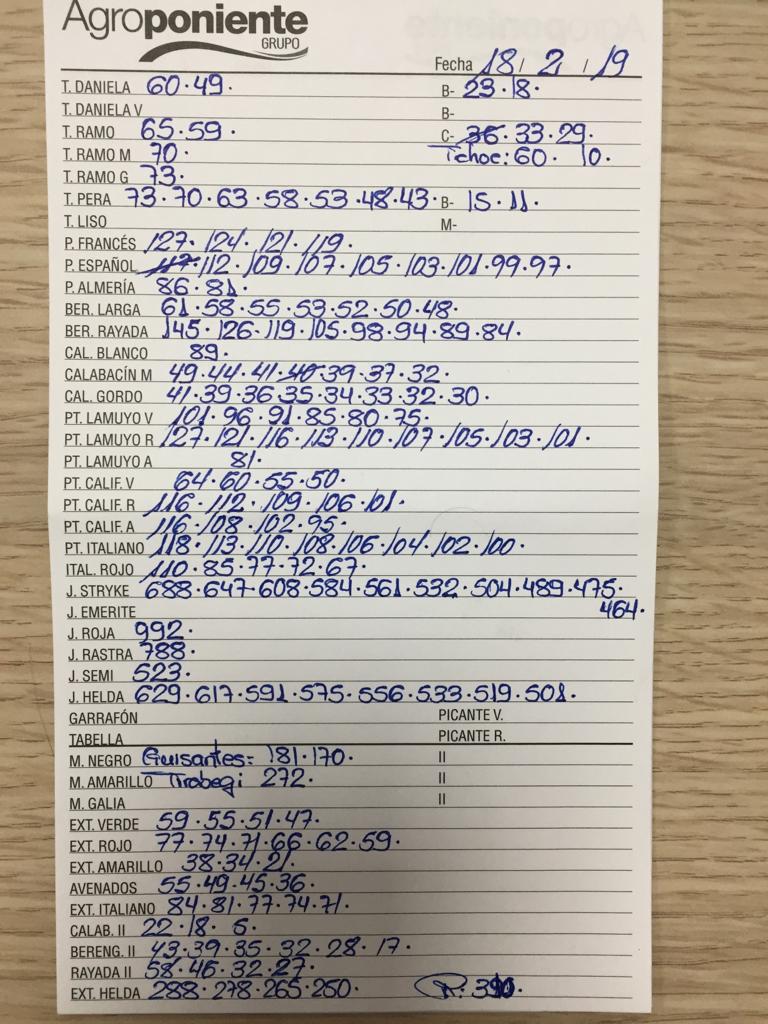 Agroponiente
GRUPO
Fecha 18 / 2 / 19
T. DANIELA 60·49· B- 23·18·
T. DANIELA V B-
T. RAMO 65·59· C- 36·33·29·
T. RAMO M 70· Tchoc: 60· 10·
T. RAMO G 73·
T. PERA 73·70·63·58·53·48·43· B- 15·11·
T. LISO M-
P. FRANCÉS 127·124·121·119·
P. ESPAÑOL 117·112·109·107·105·103·101·99·97·
P. ALMERÍA 86·81·
BER. LARGA 61·58·55·53·52·50·48·
BER. RAYADA 145·126·119·105·98·94·89·84·
CAL. BLANCO 89·
CALABACÍN M 49·44·41·40·39·37·32·
CAL. GORDO 41·39·36·35·34·33·32·30·
PT. LAMUYO V 101·96·91·85·80·75·
PT. LAMUYO R 127·121·116·113·110·107·105·103·101·
PT. LAMUYO A 81·
PT. CALIF. V 64·60·55·50·
PT. CALIF. R 116·112·109·106·101·
PT. CALIF. A 116·108·102·95·
PT. ITALIANO 118·113·110·108·106·104·102·100·
ITAL. ROJO 110·85·77·72·67·
J. STRYKE 688·647·608·584·561·532·504·489·475·
J. EMERITE 464·
J. ROJA 992·
J. RASTRA 788·
J. SEMI 523·
J. HELDA 629·617·591·575·556·533·519·501·
GARRAFÓN PICANTE V.
TABELLA PICANTE R.
M. NEGRO Guisantes: 181·170· II
M. AMARILLO Tirabegi 272· II
M. GALIA II
EXT. VERDE 59·55·51·47·
EXT. ROJO 77·74·71·66·62·59·
EXT. AMARILLO 38·34·21·
AVENADOS 55·49·45·36·
EXT. ITALIANO 84·81·77·74·71·
CALAB. II 22·18· 6·
BERENG. II 43·39·35·32·28·17·
RAYADA II 58·46·32·27·
EXT. HELDA 288·278·265·250·